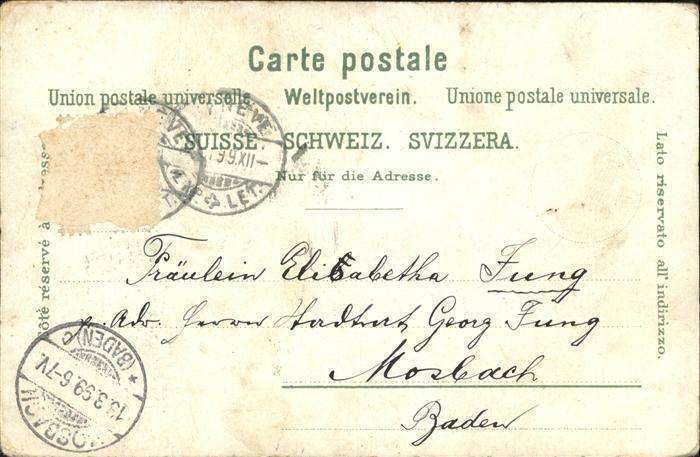 Carte postale
Union postale universelle. Weltpostverein. Unione postale universale.
SUISSE. SCHWEIZ. SVIZZERA.
Nur für die Adresse.
Côté réservé à
Lato riservato all'indirizzo.
GENÈVE
99.XII
LET.
Fräulein Elisabetha Jung
p. Adr. Herrn Stadtrat Georg Jung
Mosbach
Baden
MOSBACH
* (BADEN) C
13.3.99.6-7V.